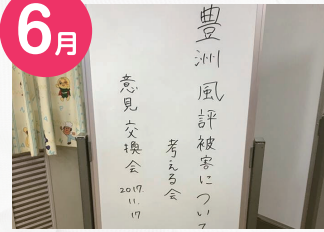 6月
豊洲 風評被害について
考える会
意見交換会
2017.
11.17